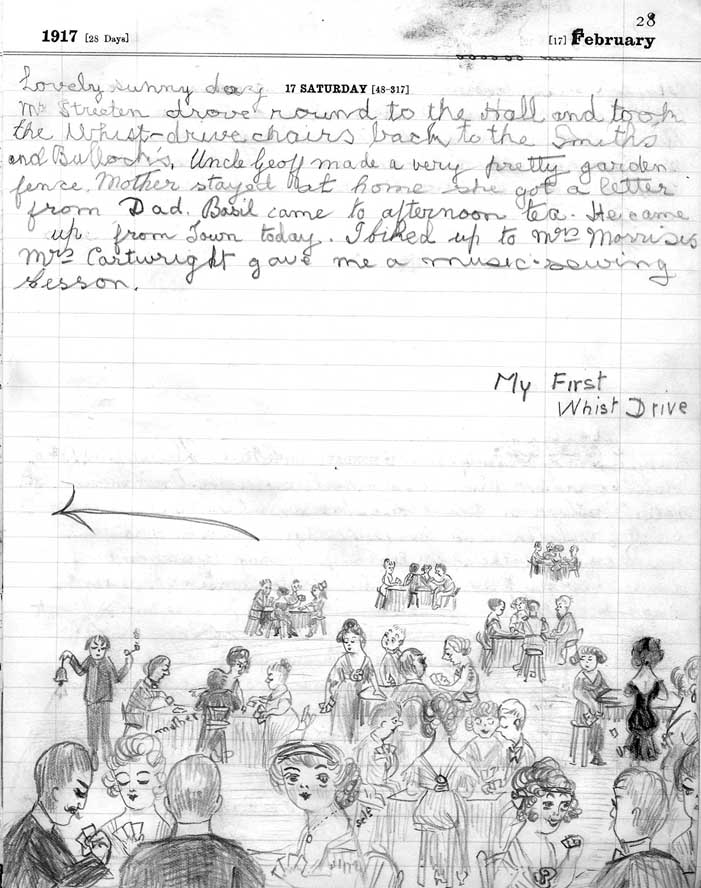 28
1917 [28 Days] [17] February
Lovely sunny day 17 SATURDAY [48-317]
Mr Streeten drove round to the Hall and took
the Whist-drive chairs back to the Smiths
and Bullock's. Uncle Geoff made a very pretty garden
fence. Mother stayed at home she got a letter
from Dad. Basil came to afternoon tea. He came
up from Town today. I biked up to Mrs Morrisis
Mrs Cartwright gave me a music-sewing
lesson.
My First
Whist Drive
mother
self